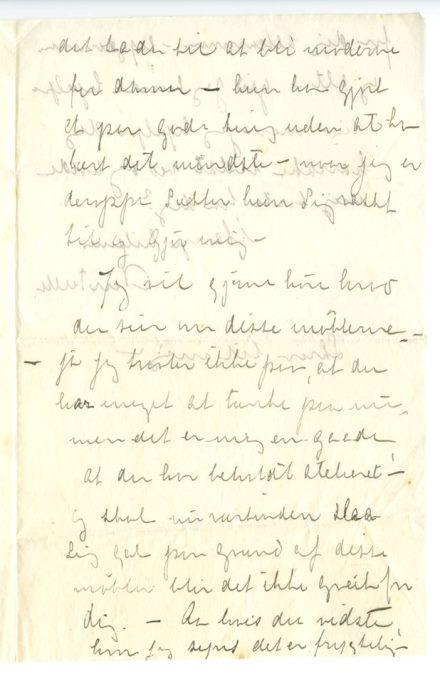 det lader til at bli moderne
for damer – hun har gjort
et par gode ting uden at ha
lært det mindste – naar jeg er
deroppe sætter hun sig
til og
Jeg vil gjerne høre hvad
du sier om disse møblerne –
– ja jeg trøster ikke paa, at du
har meget at tænke paa nu,
men det er mig en gaade
at du har beholdt atelieret –
og skal nu værtinden slaa
sig gal paa grund af disse
møbler blir det ikke greit for
dig. – Aa hvis du vidste
hvor jeg synes det er frygtelig